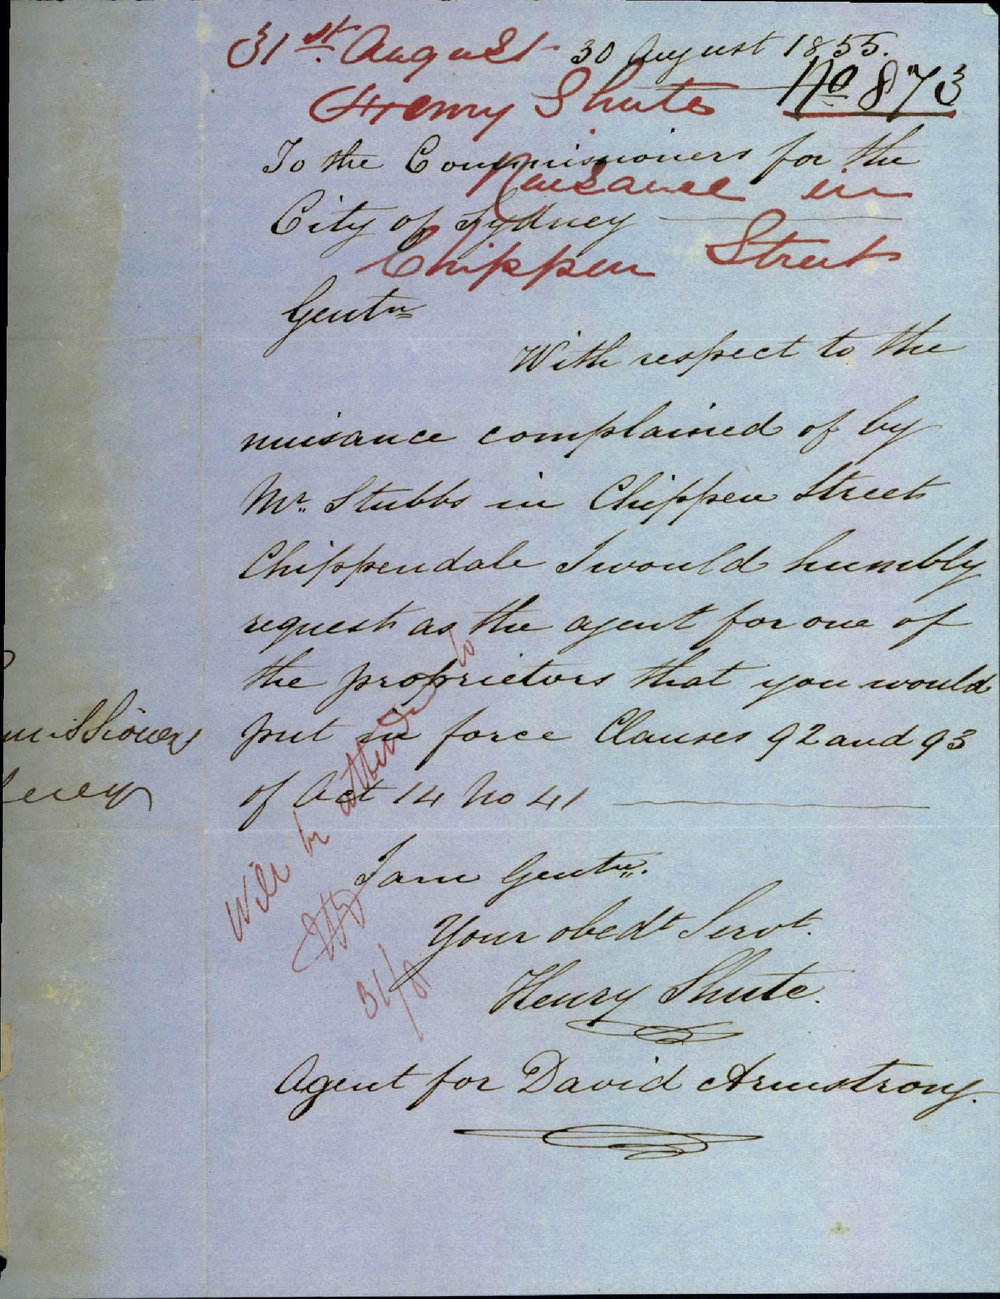 31st August
30 August 1855.
No 873
Henry Shute
To the Commissioners for the
Nuisance in
City of Sydney
Chippen Street
Gentn
With respect to the
nuisance complained of by
Mr. Stubbs in Chippen Street
Chippendale I would humbly
request as the agent for one of
the proprietors that you would
put in force Clauses 92 and 93
of Act 14 No 41
I am Gentn.
Your obedt Servt.
Henry Shute.
Agent for David Armstrong.
Will be attended to
31/8